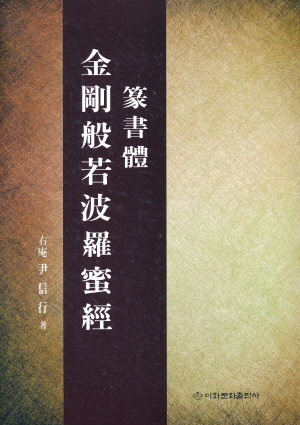 篆書體
金剛般若波羅蜜經
右庵 尹信行 著
이화문화출판사